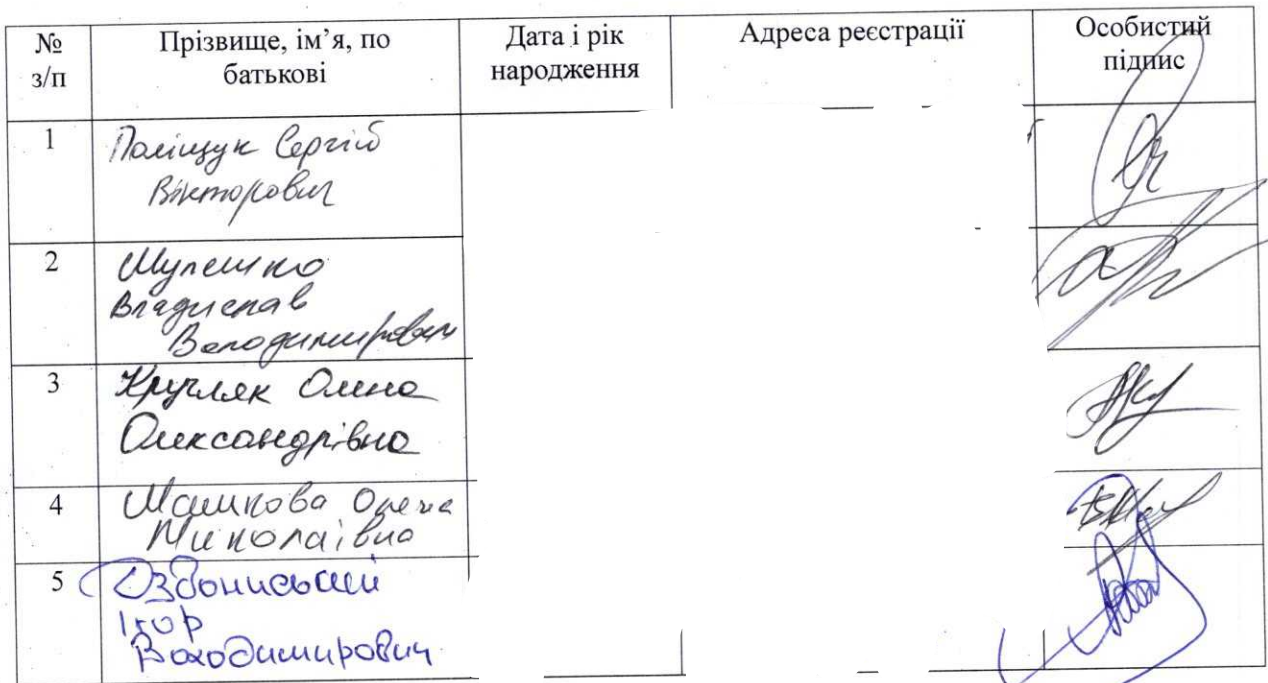 № з/п
Прізвище, ім’я, по батькові
Дата і рік народження
Адреса реєстрації
Особистий підпис
1
Поліщук Сергій
Вікторович
2
Мулешко
Владислав
Володимирович
3
Кругляк Олена
Олександрівна
4
Машкова Олена
Миколаївна
5
Ігор
Володимирович